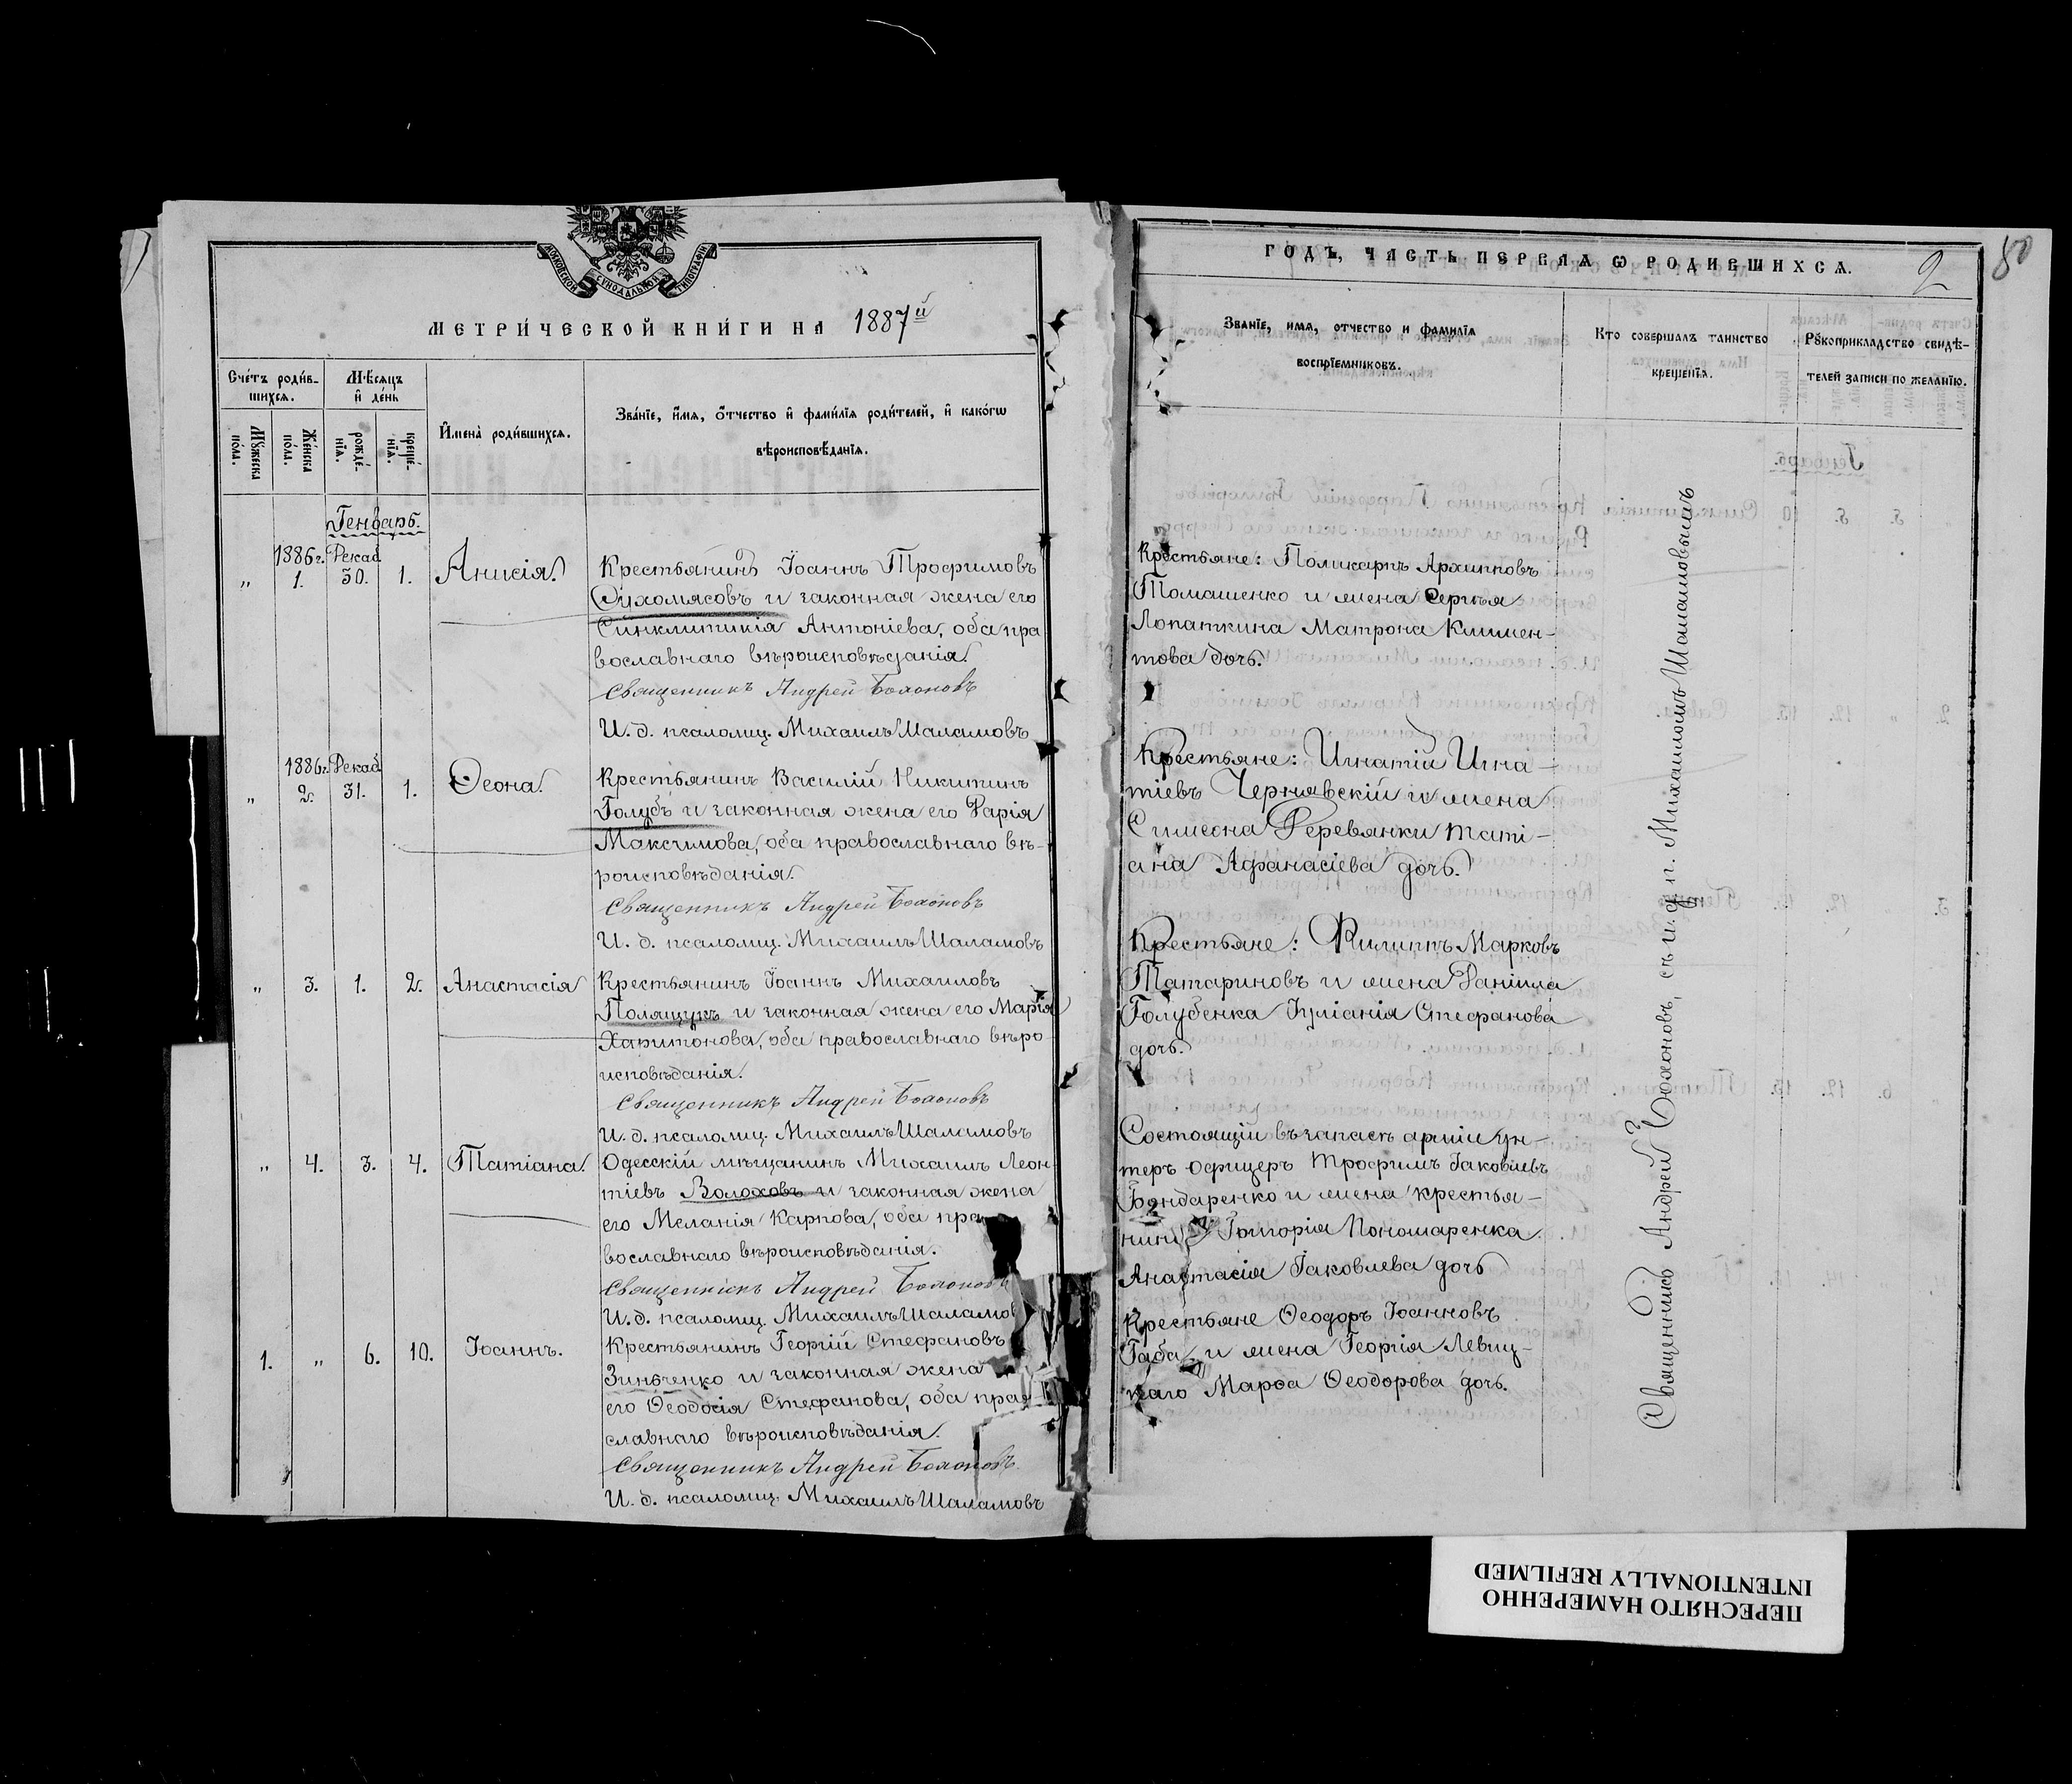 МОСКОВСКОЙ СУНОДАЛЬНОЙ ТИПОГРАФІИ
МЕТРИ́ЧЕСКОЙ КНИ́ГИ НА 1887й
Сче́тъ роди́в-
шихся.
Мѣ́сяцъ
и҆ де́нь
Мꙋжеска
по́ла.
Же́нска
по́ла.
рожде́-
нїя.
креще́-
нїя.
И҆мена̀ роди́вшихся.
Зва́нїе, и҆́мя, ѻ҆́тчество и҆ фами́лїя роди́телей, и҆ како́гѡ
вѣроисповѣ́данїя.
Генварь.
1886г. Декаб.
„ 1. 30. 1. Анисія.
Крестьянинъ Іоаннъ Трофимовъ
Сухомясовъ и законная жена его
Синклитикія Антоніева, оба пра
вославнаго вѣроисповѣданія.
Священникъ Андрей Бохоновъ
И. д. псаломщ. Михаилъ Шаламовъ
1886г. Декаб.
„ 2. 31. 1. Ѳеона.
Крестьянинъ Василій Никитинъ
Голубъ и законная жена его Дарія
Максимова, оба православнаго вѣ-
роисповѣданія.
Священникъ Андрей Бохоновъ
И. д. псаломщ. Михаилъ Шаламовъ
„ 3. 1. 2. Анастасія
Крестьянинъ Іоаннъ Михаиловъ
Полящукъ и законная жена его Марія
Харитонова, оба православнаго вѣро
исповѣданія.
Священникъ Андрей Бохоновъ
И. д. псаломщ. Михаилъ Шаламовъ
„ 4. 3. 4. Татіана.
Одесскій мѣщанинъ Михаилъ Леон-
тіевъ Волоховъ и законная жена
его Меланія Карпова, оба пра
вославнаго вѣроисповѣданія.
Священникъ Андрей Бохоновъ
И. д. псаломщ. Михаилъ Шаламов
1. „ 6. 10. Іоаннъ.
Крестьянинъ Георгій Стефановъ
Зинченко и законная жена
его Ѳеодосія Стефанова, оба прав
славнаго вѣроисповѣданія.
Священникъ Андрей Бохоновъ
И. д. псаломщ. Михаилъ Шаламовъ
ГОДЪ, ЧАСТЬ ПЕРВАЯ Ѡ РОДИВШИХСЯ.
2
80
Званїе, имя, отчество и фамилїя
воспрїемниковъ.
Кто совершалъ таинство
крещенїя.
Рꙋкоприкладство свидѣ-
телей записи по желанїю.
Крестьяне: Поликарпъ Архипповъ
Томашенко и жена Сергѣя
Лопаткина Матрона Климен-
това дочь.
Крестьяне: Игнатій Игна-
тіевъ Чернявскій и жена
Симеона Деревянки Тати-
ана Афанасіева дочь.
Крестьяне: Филиппъ Марковъ
Татариновъ и жена Даніила
Голубенка Іуліанія Стефанова
дочь.
Состоящій въ запасѣ арміи ун-
теръ офицеръ Трофимъ Іаковлевъ
Бондаренко и жена крестья-
нина Григорія Пономаренка
Анастасія Іаковлева дочь
Крестьяне Ѳеодоръ Іоанновъ
Габа и жена Георгія Левиц-
каго Марѳа Ѳеодорова дочь.
Священникъ Андрей Бохоновъ, съ и. д. п. Михаиломъ Шаламовымъ
ПЕРЕСНЯТО НАМЕРЕННО
INTENTIONALLY REFILMED